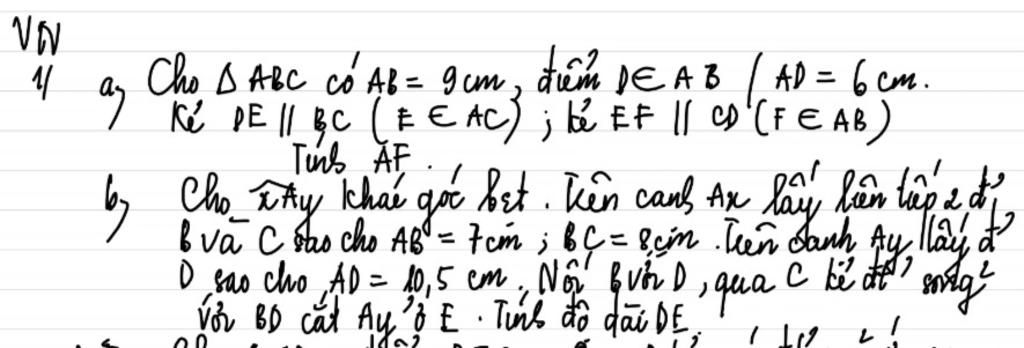 VN
1/ a, Cho Δ ABC có AB = 9 cm, điểm D ∈ AB / AD = 6 cm.
Kẻ DE // BC (E ∈ AC) ; kẻ EF // CD (F ∈ AB)
Tính AF.
b, Cho xAy khác góc bẹt. Trên cạnh Ax lấy liên tiếp 2 đ'
B và C sao cho AB = 7 cm ; BC = 8 cm. Trên cạnh Ay lấy đ'
D sao cho AD = 10,5 cm. Nối B với D, qua C kẻ đt' song²
với BD cắt Ay ở E. Tính độ dài DE.